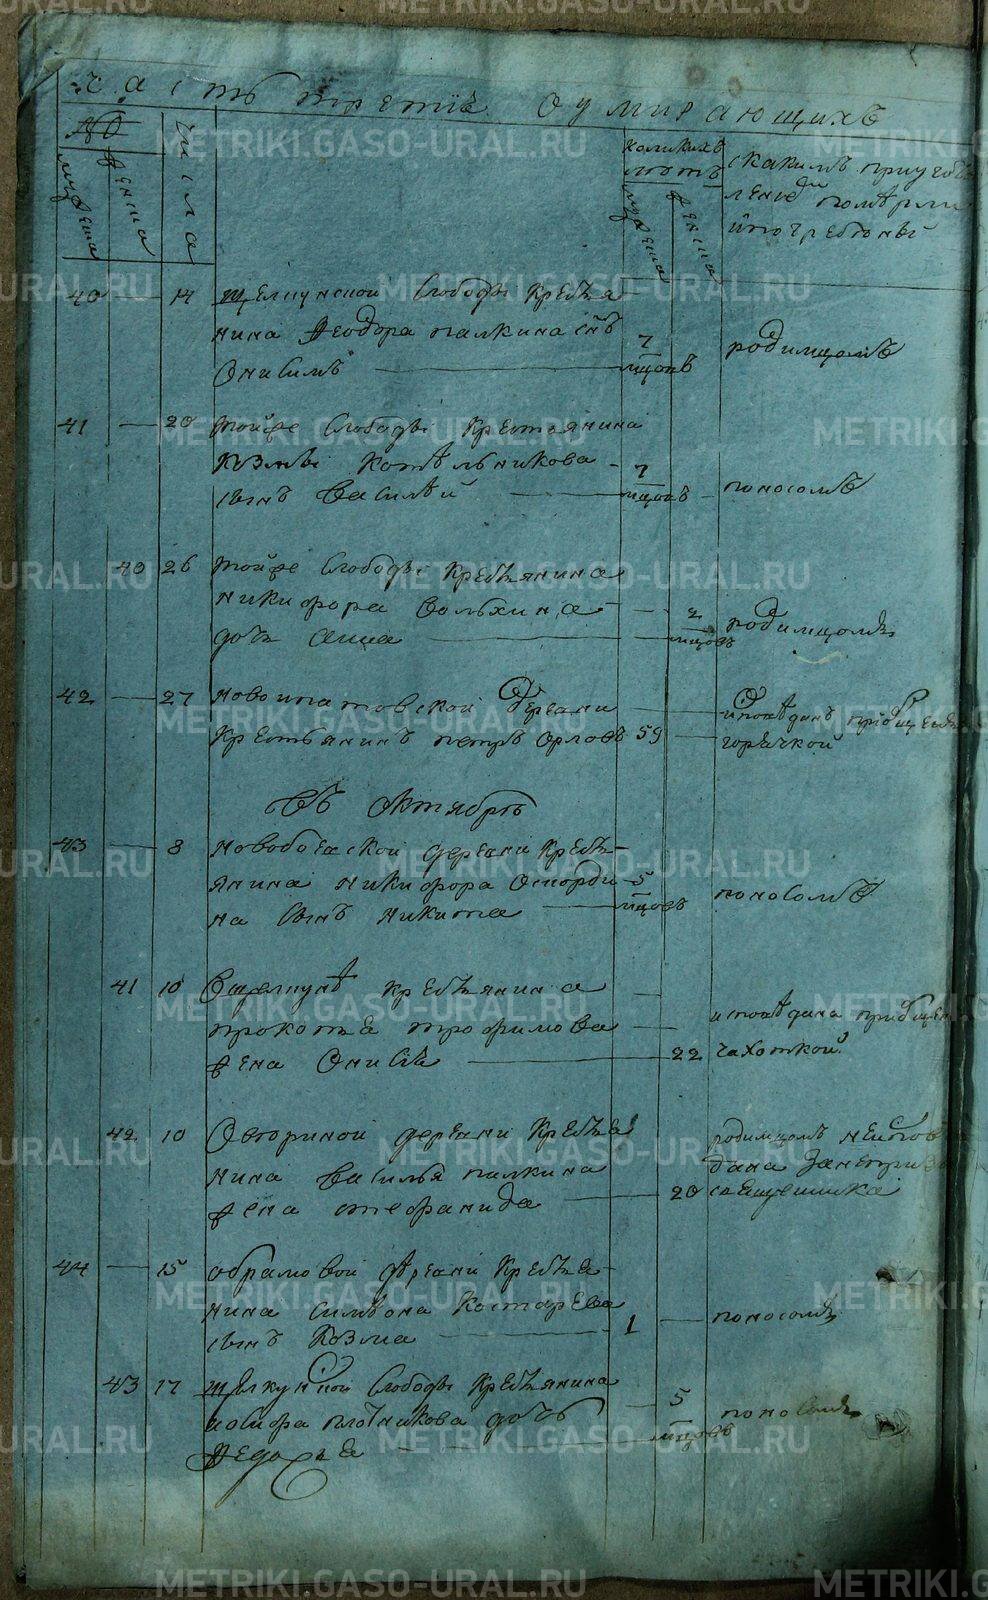 часть третїѧ о умирающихъ
№
мужеска
женска
числа
коликихъ
лѣтъ
мужеска
женска
с какимъ приуготов
ленїе померли
и погребены
40 — 14 Щелкунской слободы кресть
янина Ѳеодора Палкина снъ
Онисимъ — 7 мцовъ родимцомъ
41 — 20 тойже слободы крестьянина
Козмы Котельникова
сынъ Василей — 7 мцовъ — поносомъ
40 26 тойже слободы крестьянина
Никифора
дочь Анна — 2 мцовъ родимцомъ
42 — 27 Новоипатовской деревни
крестьянинъ Петръ Орловъ 59 — исповѣданъ приобщенъ
горячкой
Въ октябрѣ
43 — 8 деревни кресть
янина Никифора
на сынъ Никита — 5 мцовъ поносомъ
41 10 крестьянина
Прокопья Трофимова
жена Онисїя — 22 исповѣдана приобщен
чахоткой
42 10 деревни крестья
нина Василья Палкина
жена — 20 родимцомъ неиспов
дана
священника
44 — 15 Абрамовой деревни крестья
нина Симеона Костарева
сынъ Козма — 1 — поносомъ
43 17 Щелкунской слободы крестьянина
Плотникова дочь
Ѳедосья — 5 мцовъ поносомъ
METRIKI.GASO-URAL.RU